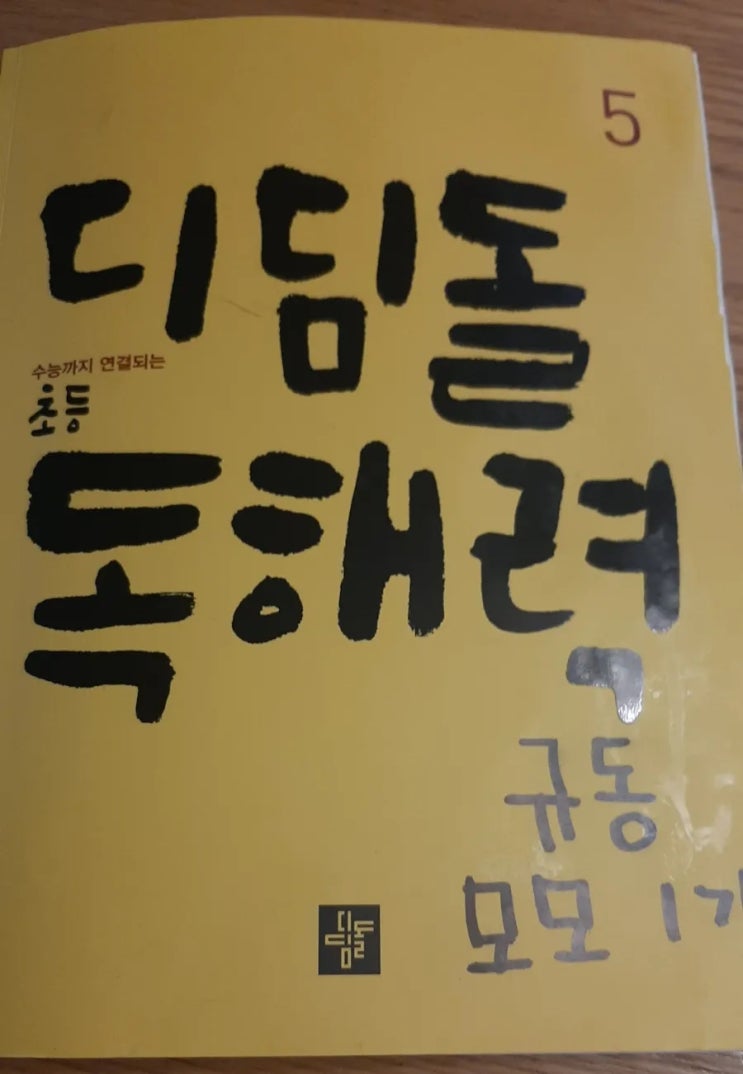 5
디딤돌
수능까지 연결되는
초등
독해력
규동
모모
디딤돌